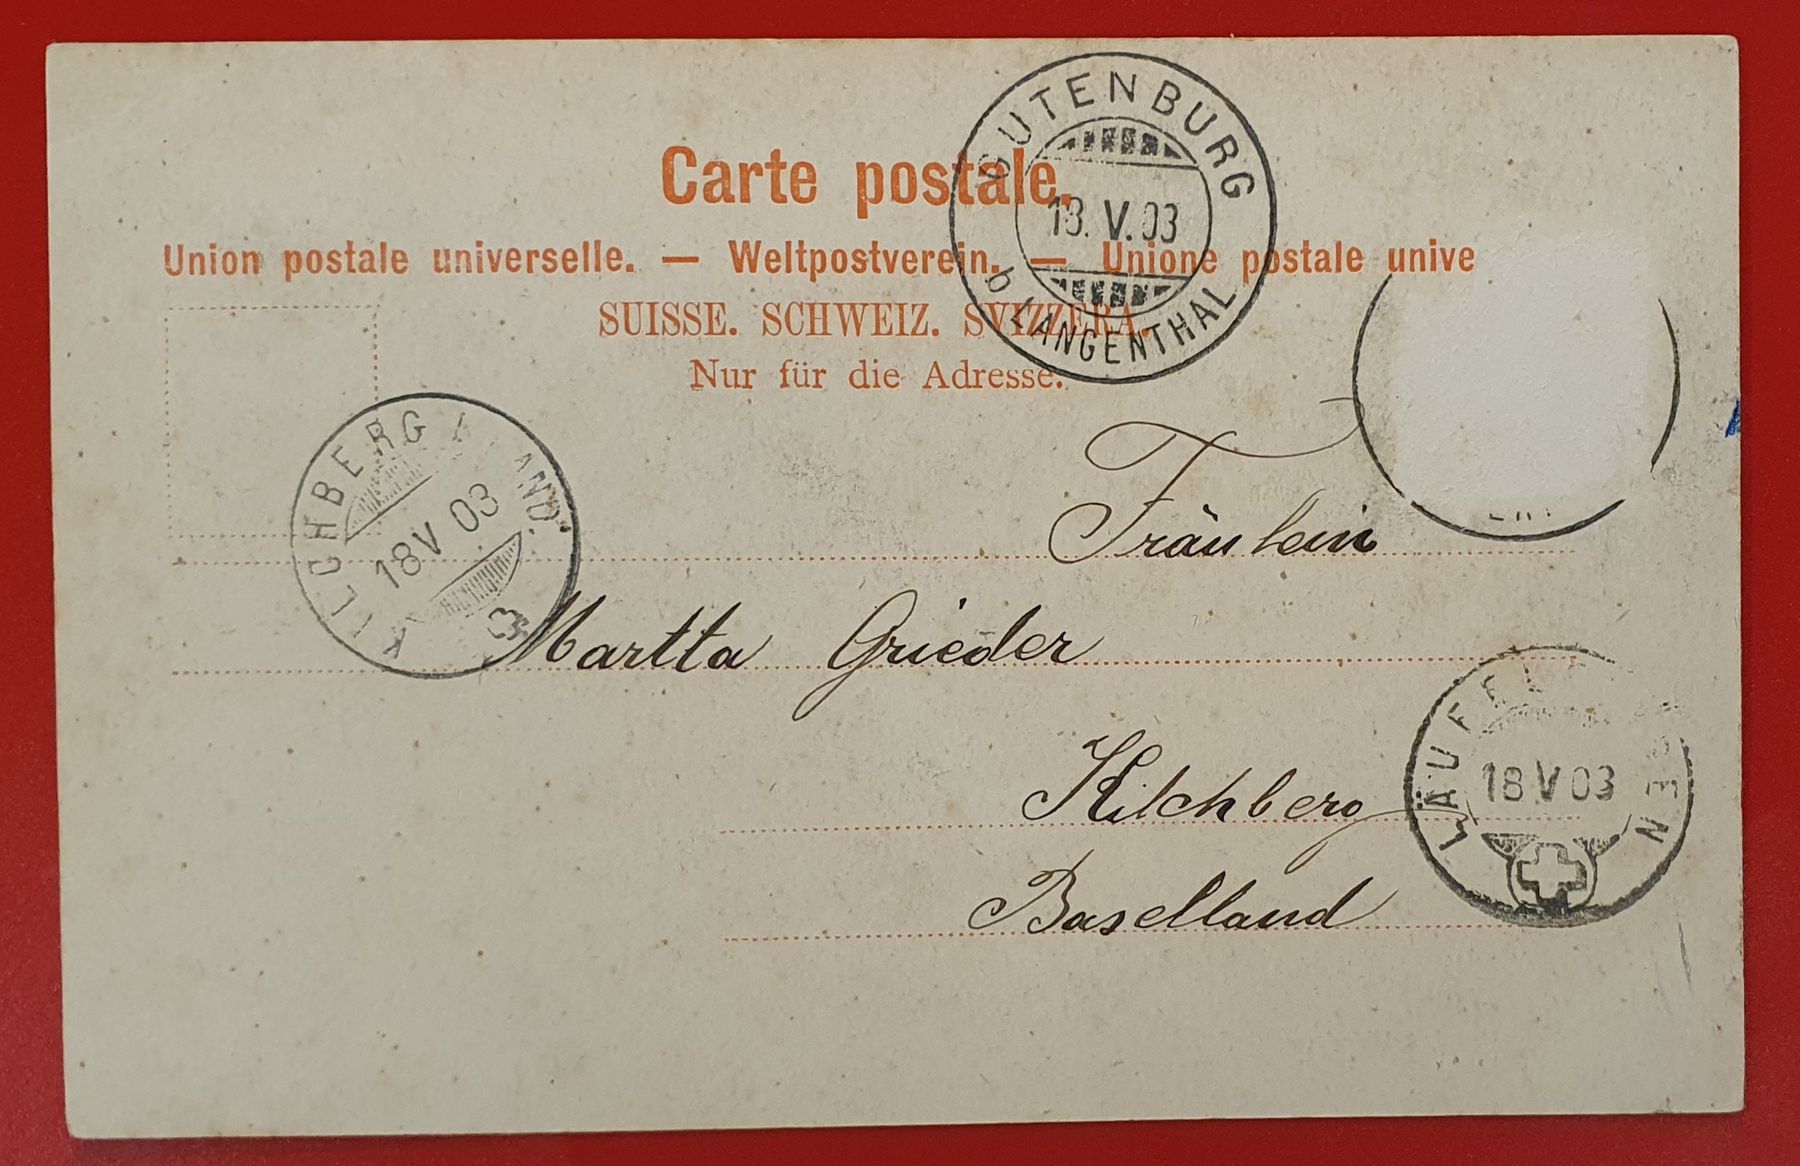 GUTENBURG
18. V. 03
b/LANGENTHAL
Carte postale.
Union postale universelle. — Weltpostverein. — Unione postale unive
SUISSE. SCHWEIZ. SVIZZERA.
Nur für die Adresse.
KILCHBERG
18 V 03
Fräulein
Martta Grieder
Kilchberg
Baselland
18 V 03